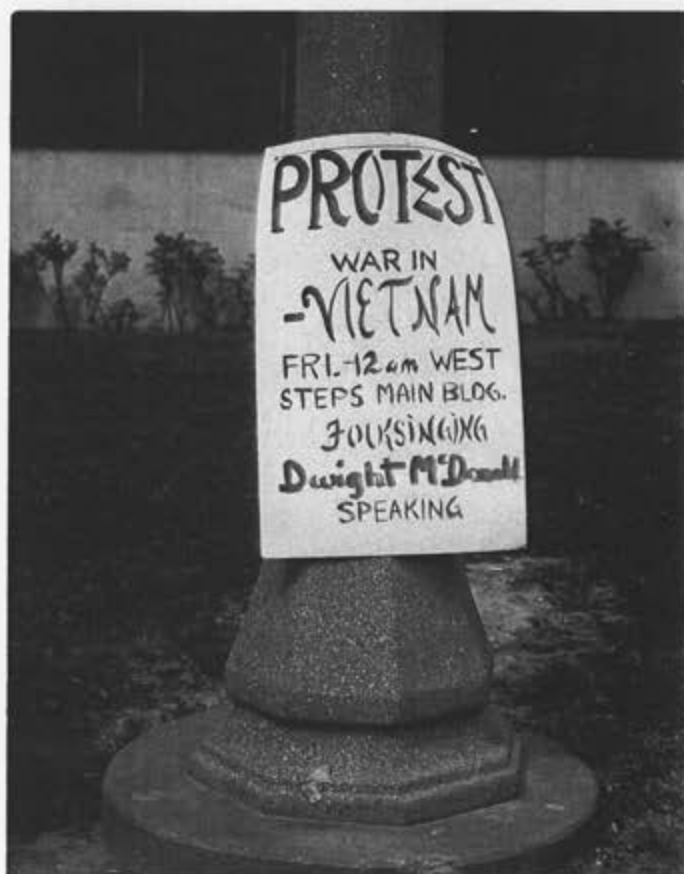 PROTEST
WAR IN
-VIETNAM
FRI.-12am WEST
STEPS MAIN BLDG.
FOLKSINGING
Dwight McDonald
SPEAKING